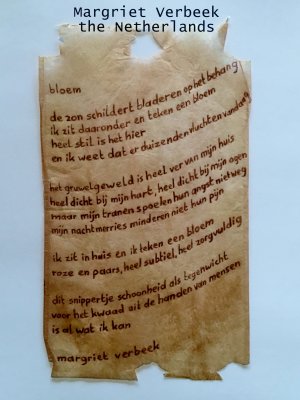 Margriet Verbeek
the Netherlands
bloem
de zon schildert bladeren op het behang
ik zit daaronder en teken een bloem
heel stil is het hier
en ik weet dat er duizenden vluchten vandaag
het gruwelgeweld is heel ver van mijn huis
heel dicht bij mijn hart, heel dicht bij mijn ogen
maar mijn tranen spoelen hun angst niet weg
mijn nachtmerries minderen niet hun pijn
ik zit in huis en ik teken een bloem
roze en paars, heel subtiel, heel zorgvuldig
dit snippertje schoonheid als tegenwicht
voor het kwaad uit de handen van mensen
is al wat ik kan
margriet verbeek